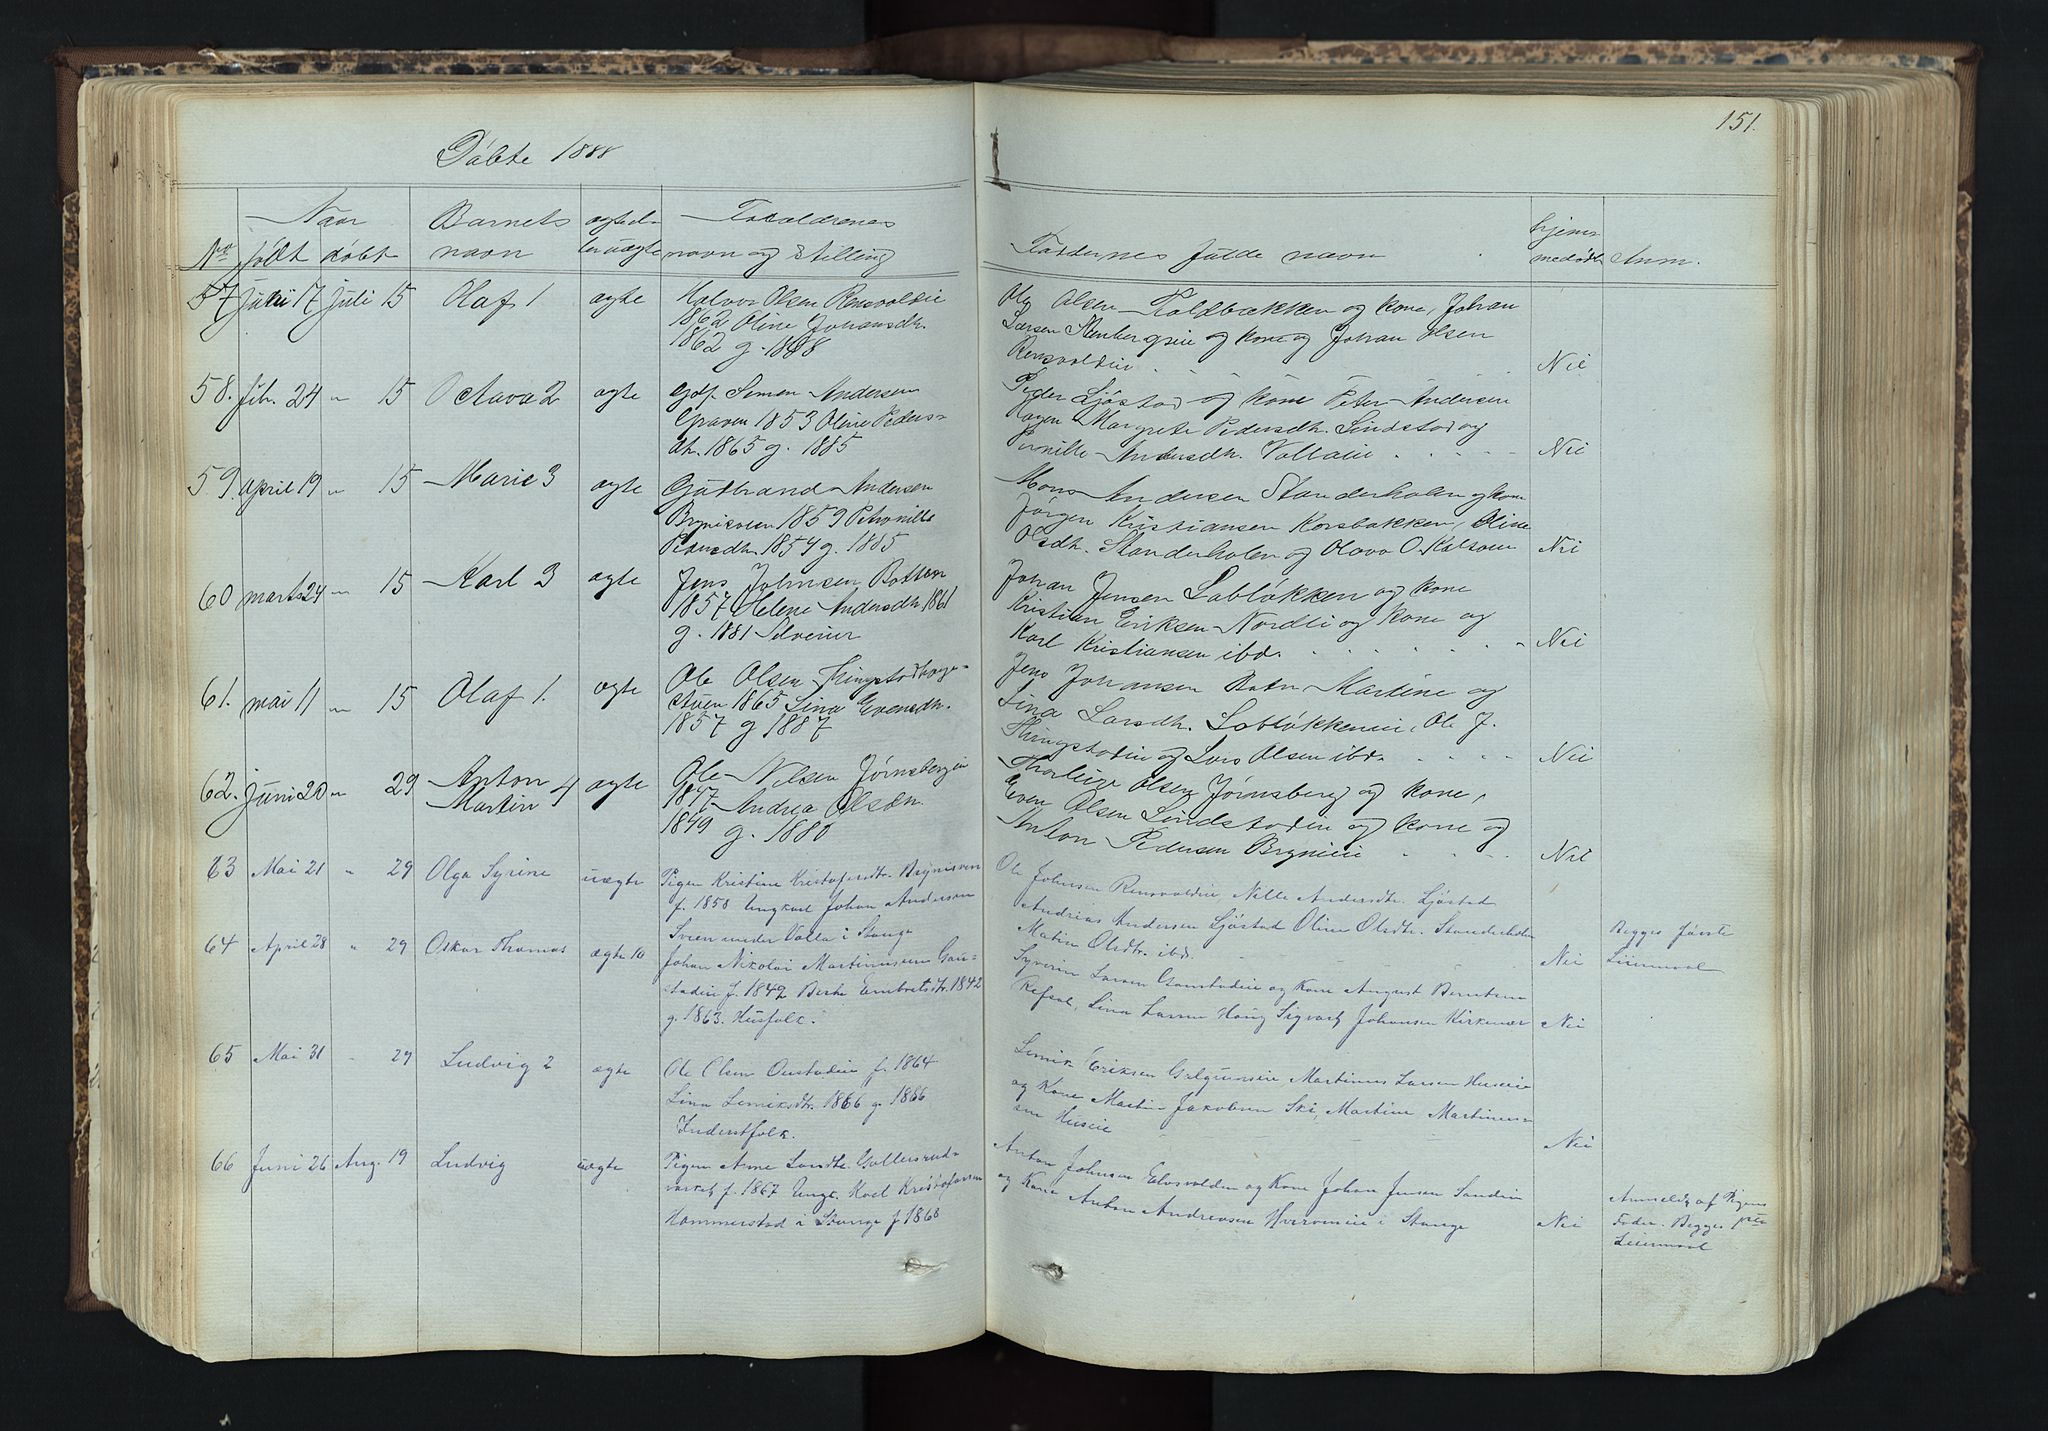 151.
Døbte 1888
Naar
Barnets
ægte el-
Forældrenes
hjem-
No født døbt
navn
ler uægte
navn og Stilling
Faddernes fulde navn
medøbt
Anm.
57 Juni 17 Juli 15 Olaf 1 ægte Halvor Olsen Rensvoldeie
1862 Oline Johansdh.
1862 g. 1888
Ole Olsen Koldbækken og kone, Johan
Larsen Stenbergseie og kone og Johan Olsen
Rensvoldeie Nei
58. feb. 24 " 15 Octava 2 ægte Gdf. Simen Andersen
Graven 1853 Oline Peders-
dh. 1865 g. 1885
Peder Ljøstad og kone Peter Andersen
Hagen Margrete Pedersdh. Lindstad og
Pernille Andersdh. Vollaeie Nei
59. april 19 " 15 Marie 3 ægte Gulbrand Andersen
Brynisveen 1859 Petronille
1854 g. 1885
Mons Andersen Standerholen og kone
Jørgen Kristiansen Korsbakken, Oline
Olsdh. Standerholen og Olava O. Nei
60 marts 24 " 15 Karl 3 ægte Jens Johnsen Botten
1857 Helene Andersdh. 1861
g. 1881 Selveier
Johan Jensen Labløkken og kone
Kristian Eriksen Nordli og kone og
Karl Kristiansen ibd. Nei
61. mai 11 " 15 Olaf 1. ægte Ole Olsen Thingstadhage-
stuen 1865 Lina Evensdh.
1857 g 1887
Jens Johansen Botn Martine og
Lina Larsdh. Labløkkeneie, Ole J.
Thingstadeie og Lars Olsen ibd. Nei
62. juni 20 " 29 Anton
Martin 4 ægte Ole Nilsen Jørnsbergeie
1847 Andrea Olsdn.
1849 g. 1880
Thorleie Olsen Jørnsberg og kone,
Even Olsen Lindstadeie og kone og
Anton Pedersen Brynieie Nei
63 Mai 21 " 29 Olga Syrine uægte Pigen Kristine Kristofersdtr. Brynisveen
f. 1858 Ungkarl Johan Andersen
Sveen under Valla i Stange
Ole Johnsen Rensvoldeie, Nelle Andersdtr. Ljøstad
Andreas Andersen Ljøstad Oline Olsdtr. Standerholen
Matea Olsdtr. ibd. Nei
Begges første
Leiermaal
64 April 28 " 29 Oskar Thomas ægte 10 Johan Nikolai Martinussen Gau-
stadeie f. 1842 Berte Embretsdtr. 1842
g. 1863. Husfolk.
Syverin Larsen Gaustadeie og Kone August Berntsen
Refsal, Lina Larsen Haug Sigvart Johansen Kirkenær Nei
65 Mai 31 " 29 Ludvig 2 ægte Ole Olsen Oustadeie f. 1864
Lina Lemiksdtr. 1866 g. 1886
Inderstfolk.
Lemik Eriksen Martinus Larsen Huseie
og Kone Martin Jakobsen Ski, Martine Martinus-
sen Huseie Nei
66 Juni 26 Aug. 19 Ludvig uægte Pigen Anne Larsdtr. Gullersrud-
f. 1867 Ungk. Karl Kristofersen
Hommerstad i Stange f. 1868
Anton Johnsen Elvsvolden og Kone Johan Jensen Sandeie
og Kone Anton Andreasen i Stange Nei
Anmeldt af Pigens
Fader. Begges 1ste
Leiermaal